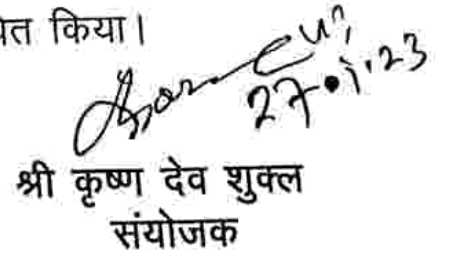 त किया।
27.1.23
श्री कृष्ण देव शुक्ल
संयोजक